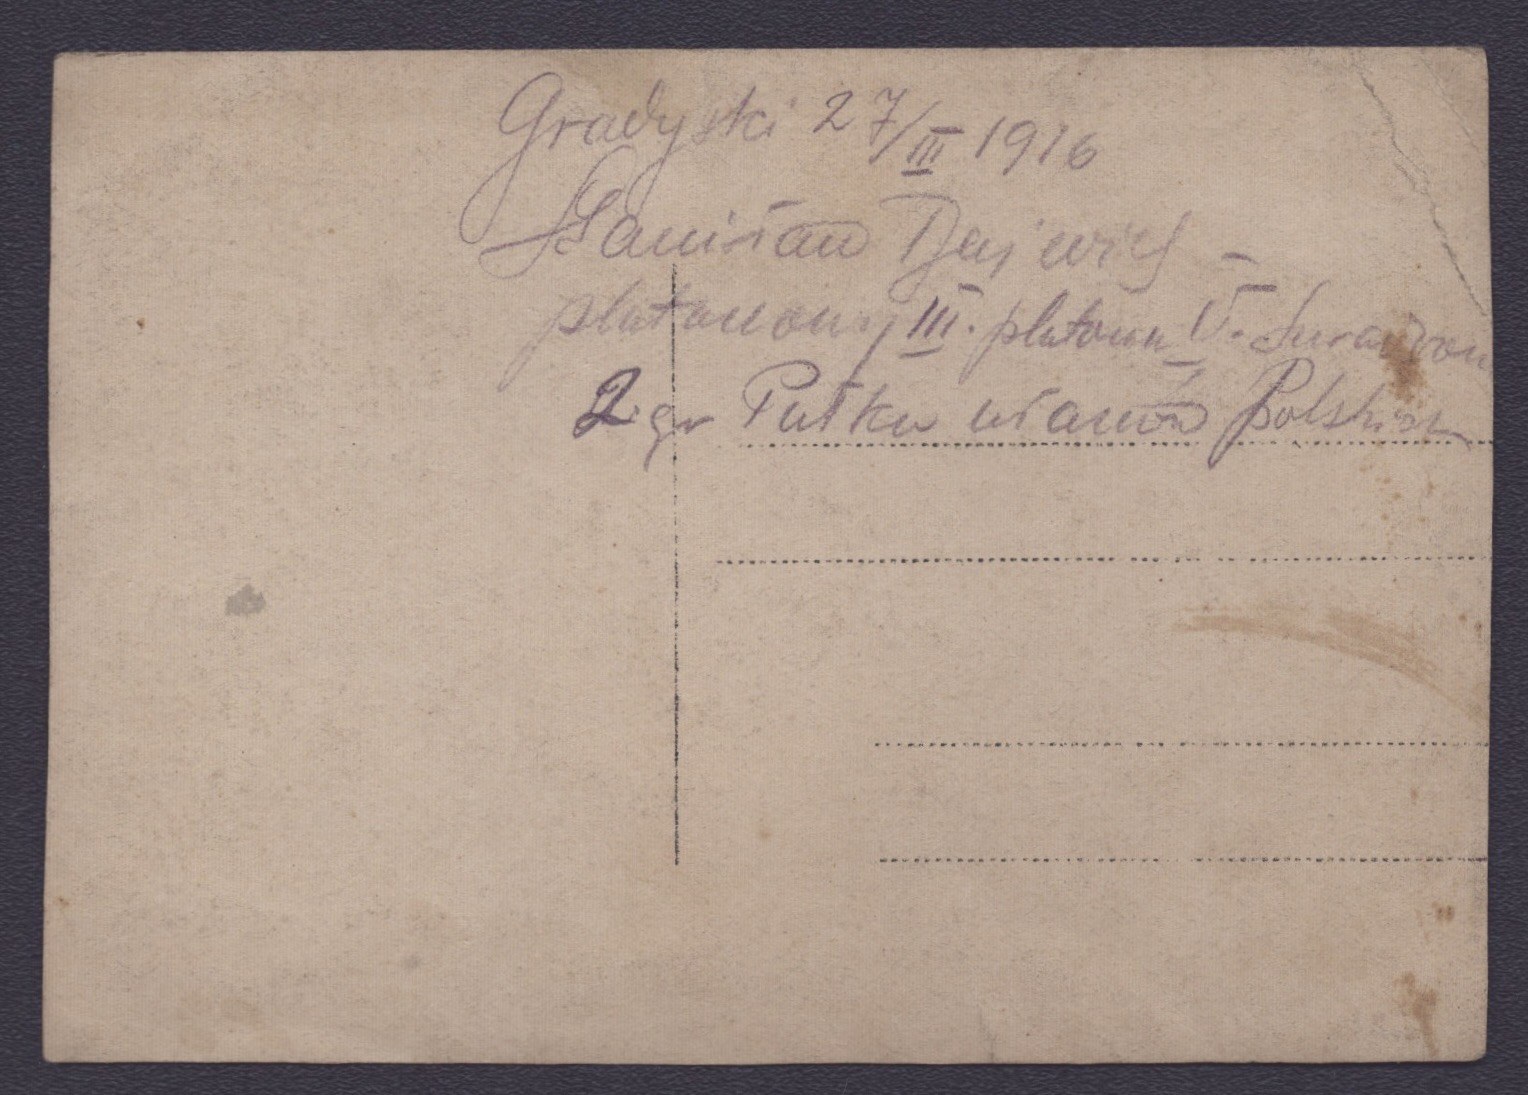 Gradyski 27/III 1916
Stanisław
plutonowy III. plutonu V. Szwadronu
2-go Pułku ułanów Polskich